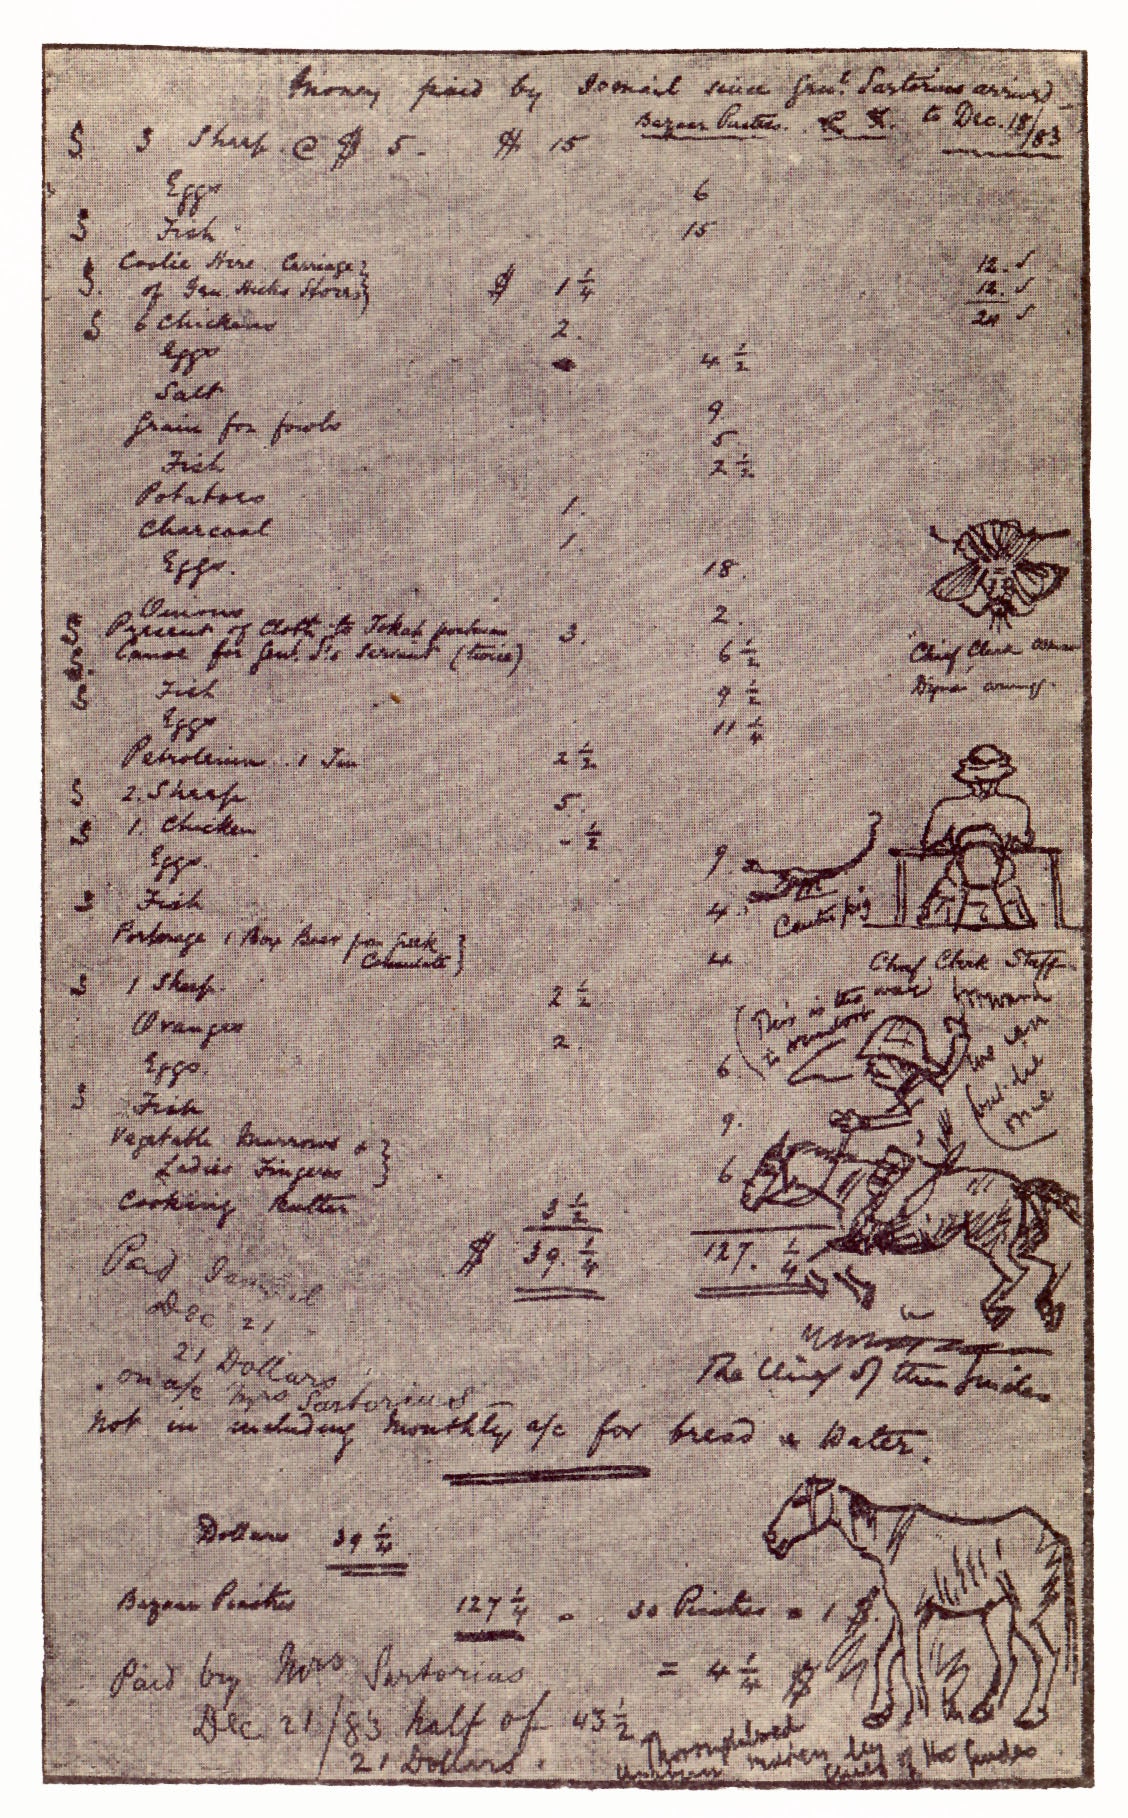 Money paid by Ismail since Genl. Sartorius arrived
Bazaar Piastres. to Dec. 18/83
S 3 Sheep @ $ 5. $ 15
Eggs 6
S Fish 15
S Coolie Hire Carriage 12. ✓
of Gen. Hicks Horse } $ 1 1/4 12. ✓
24 ✓
S 6 Chickens 2.
Eggs 4 1/2
Salt
Grain for fowls 9
5
Fish 2 1/2
Potatoes 1.
Charcoal 1.
Eggs. 18.
Onions 2.
S Present of Cloth to Tokah 3.
S. Canoe for Genl. S's Servant (twice) 6 1/2
Chief Clerk
S Fish 9 1/2
Eggs 11 1/4
Petroleum 1 Tin 2 1/2
S 2. Sheep 5.
S 1. Chicken - 1/2
Eggs. 9
S Fish 4.
Porterage 1 Box Beer from Greek
Consulate } 4
Chief Clerk Staff.
S 1 Sheep. 2 1/2
This is the way
to
forward
Oranges 2
Eggs. 6
me
S Fish 9.
Vegetable Marrows &
Ladies Fingers } 6
Cooking Butter 3 1/2
$ 39. 1/4 127. 1/4
Paid Ismail
Dec 21
21 Dollars
on a/c Mrs Sartorius
The Chief of the Guides
Not in including Monthly a/c for bread & Water.
Dollars 39 1/4
Bazaar Piastres 127 1/4 - 30 Piastres = 1 $.
= 4 1/4 $
Paid by Mrs Sartorius
Dec 21/83 half of 43 1/2
21 Dollars.
Thoroughbred
of the Guides